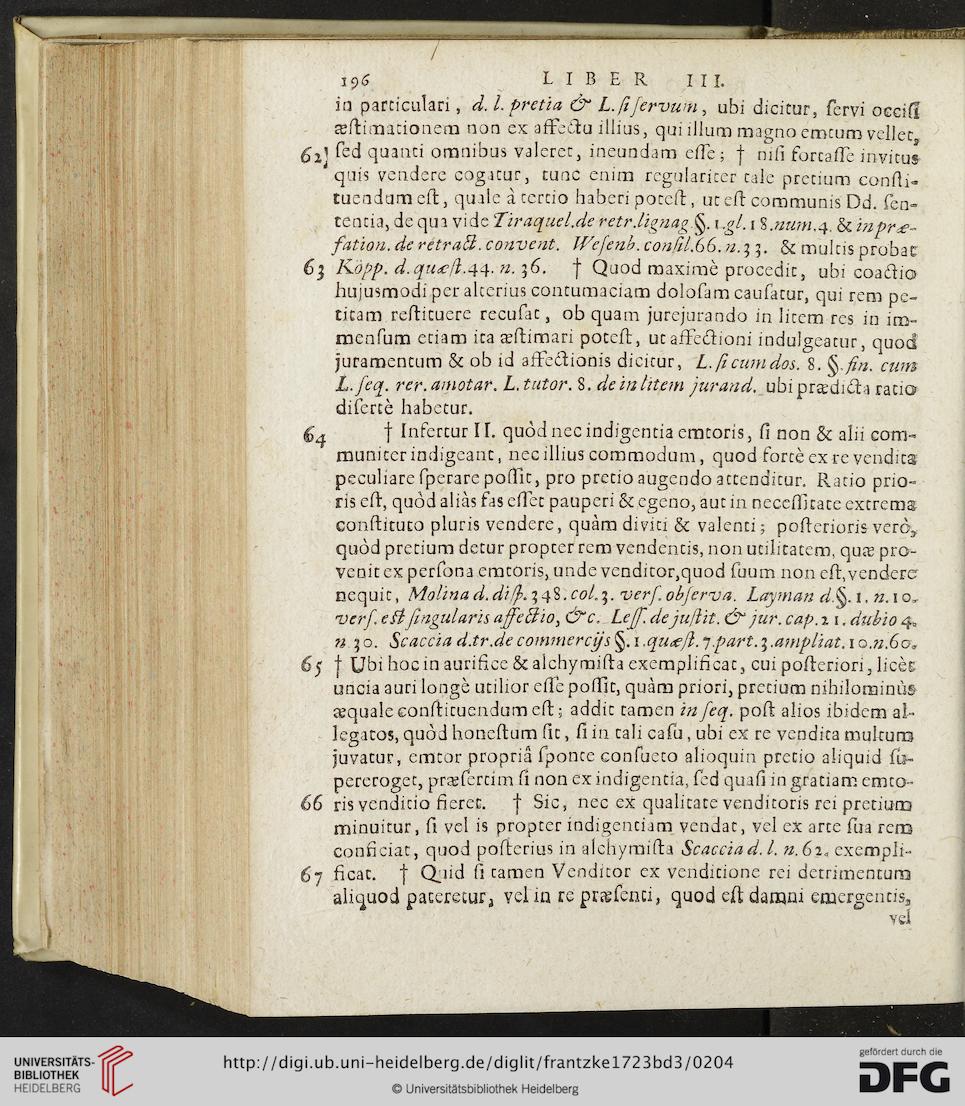 196 LIBER III.
in particulari, d. l. pretia & L. ſi ſervum, ubi dicitur, ſervi occiſi
æſtimationem non ex affectu illius, qui illum magno emtum vellet,
62 ſed quanti omnibus valeret, ineundam eſſe; † niſi fortaſſe invitus
quis vendere cogatur, tunc enim regulariter tale pretium conſti-
tuendum eſt, quale à tertio haberi poteſt, ut eſt communis Dd. ſen-
tentia, de qua vide Tiraquel. de retr. lignag §. 1. gl. 18. num. 4. & in præ-
fation. de retract. convent. Weſenb. conſil. 66. n. 33. & multis probat
63 Köpp. d. quæſt. 44. n. 36. † Quod maximè procedit, ubi coactio
hujusmodi per alterius contumaciam doloſam cauſatur, qui rem pe-
titam reſtituere recuſat, ob quam jurejurando in litem res in im-
menſum etiam ita æſtimari poteſt, ut affectioni indulgeatur, quod
juramentum & ob id affectionis dicitur, L. ſi cum dos. 8. §. fin. cum
L. ſeq. rer. amotar. L. tutor. 8. de in litem jurand. ubi prædicta ratio
diſertè habetur.
64 † Infertur II. quòd nec indigentia emtoris, ſi non & alii com-
muniter indigeant, nec illius commodum, quod fortè ex re vendita
peculiare ſperare poſſit, pro pretio augendo attenditur. Ratio prio-
ris eſt, quòd aliàs fas eſſet pauperi & egeno, aut in neceſſitate extrema
conſtituto pluris vendere, quàm diviti & valenti; poſterioris verò,
quòd pretium detur propter rem vendentis, non utilitatem, quæ pro-
venit ex perſona emtoris, unde venditor, quod ſuum non eſt, vendere
nequit, Molina d. diſp. 348. col. 3. verſ. obſerva. Layman d. §. 1. n. 10.
verſ. eſt ſingularis affectio, &c. Leſſ. de juſtit. & jur. cap. 21. dubio 4.
n 30. Scaccia d. tr. de commercijs §. 1. quæſt. 7. part. 3. ampliat. 10. n. 60.
65 † Ubi hoc in aurifice & alchymiſta exemplificat, cui poſteriori, licèt
uncia auri longè utilior eſſe poſſit, quàm priori, pretium nihilominùs
æquale conſtituendum eſt; addit tamen in ſeq. poſt alios ibidem al-
legatos, quòd honeſtum ſit, ſi in tali caſu, ubi ex re vendita multum
juvatur, emtor propriâ ſponte conſueto alioquin pretio aliquid ſu-
pereroget, præſertim ſi non ex indigentia, ſed quaſi in gratiam emto-
66 ris venditio fieret. † Sic, nec ex qualitate venditoris rei pretium
minuitur, ſi vel is propter indigentiam vendat, vel ex arte ſua rem
conficiat, quod poſterius in alchymiſta Scaccia d. l. n. 62. exempli-
67 ficat. † Quid ſi tamen Venditor ex venditione rei detrimentum
aliquod pateretur, vel in re præſenti, quod eſt damni emergentis,
vel
UNIVERSITÄTS-
BIBLIOTHEK
HEIDELBERG
http://digi.ub.uni-heidelberg.de/diglit/frantzke1723bd3/0204
© Universitätsbibliothek Heidelberg
gefördert durch die
DFG